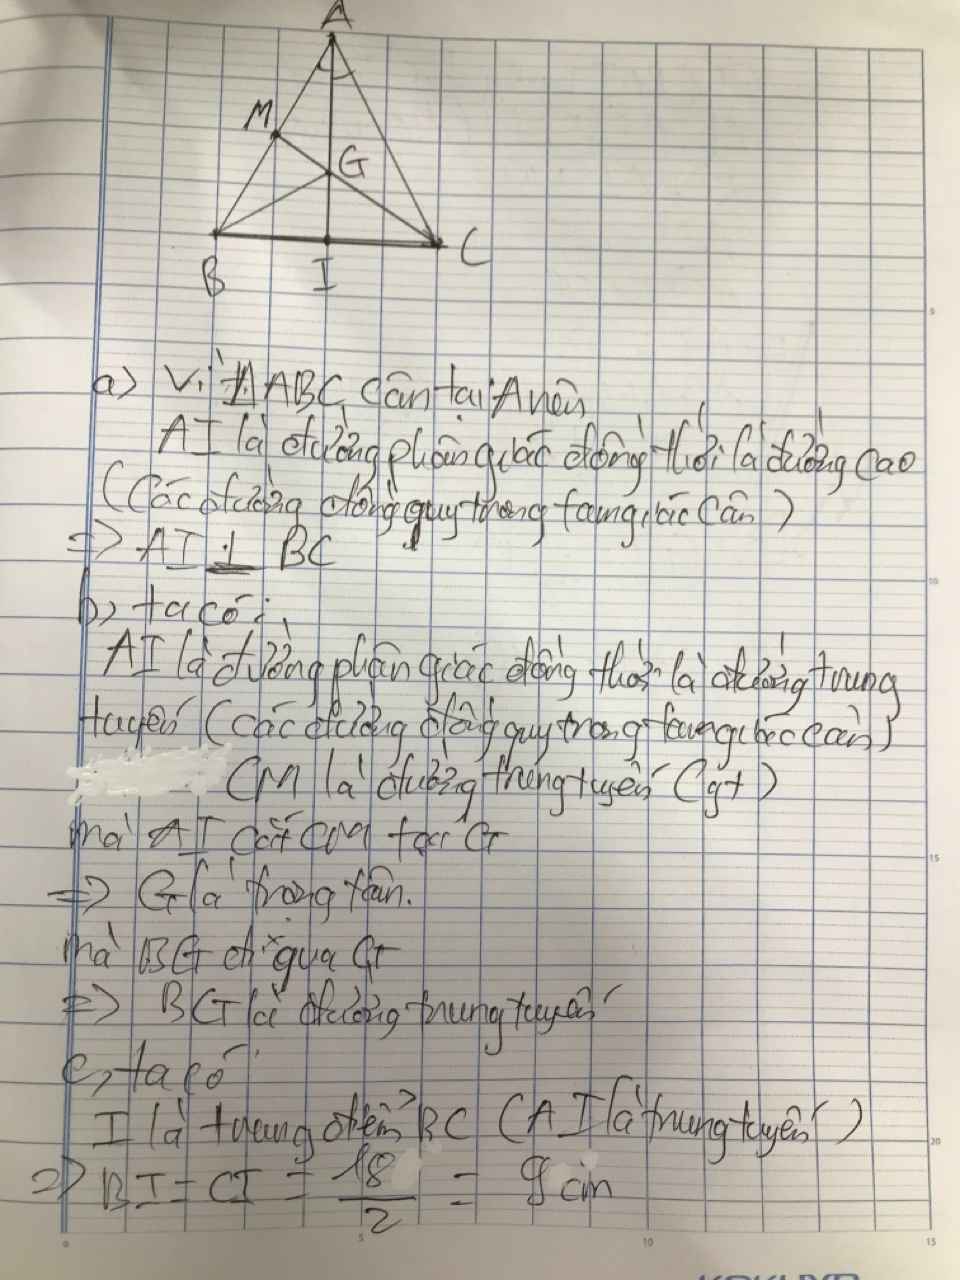 A
M
G
B
I
C
a) Vì ΔABC cân tại A nên
AI là đường phân giác đồng thời là đường cao
(Các đường đồng quy trong tam giác cân)
=> AI ⊥ BC
b, ta có:
AI là đường phân giác đồng thời là đường trung
tuyến (các đường đồng quy trong tam giác cân)
CM là đường trung tuyến (gt)
mà AI cắt CM tại G
=> G là trọng tâm.
mà BG đi qua G
=> BG là đường trung tuyến
c, ta có
I là trung điểm BC (AI là trung tuyến)
=> BI = CI = 18/2 = 9 cm
5
10
15
20
0 5 10 15